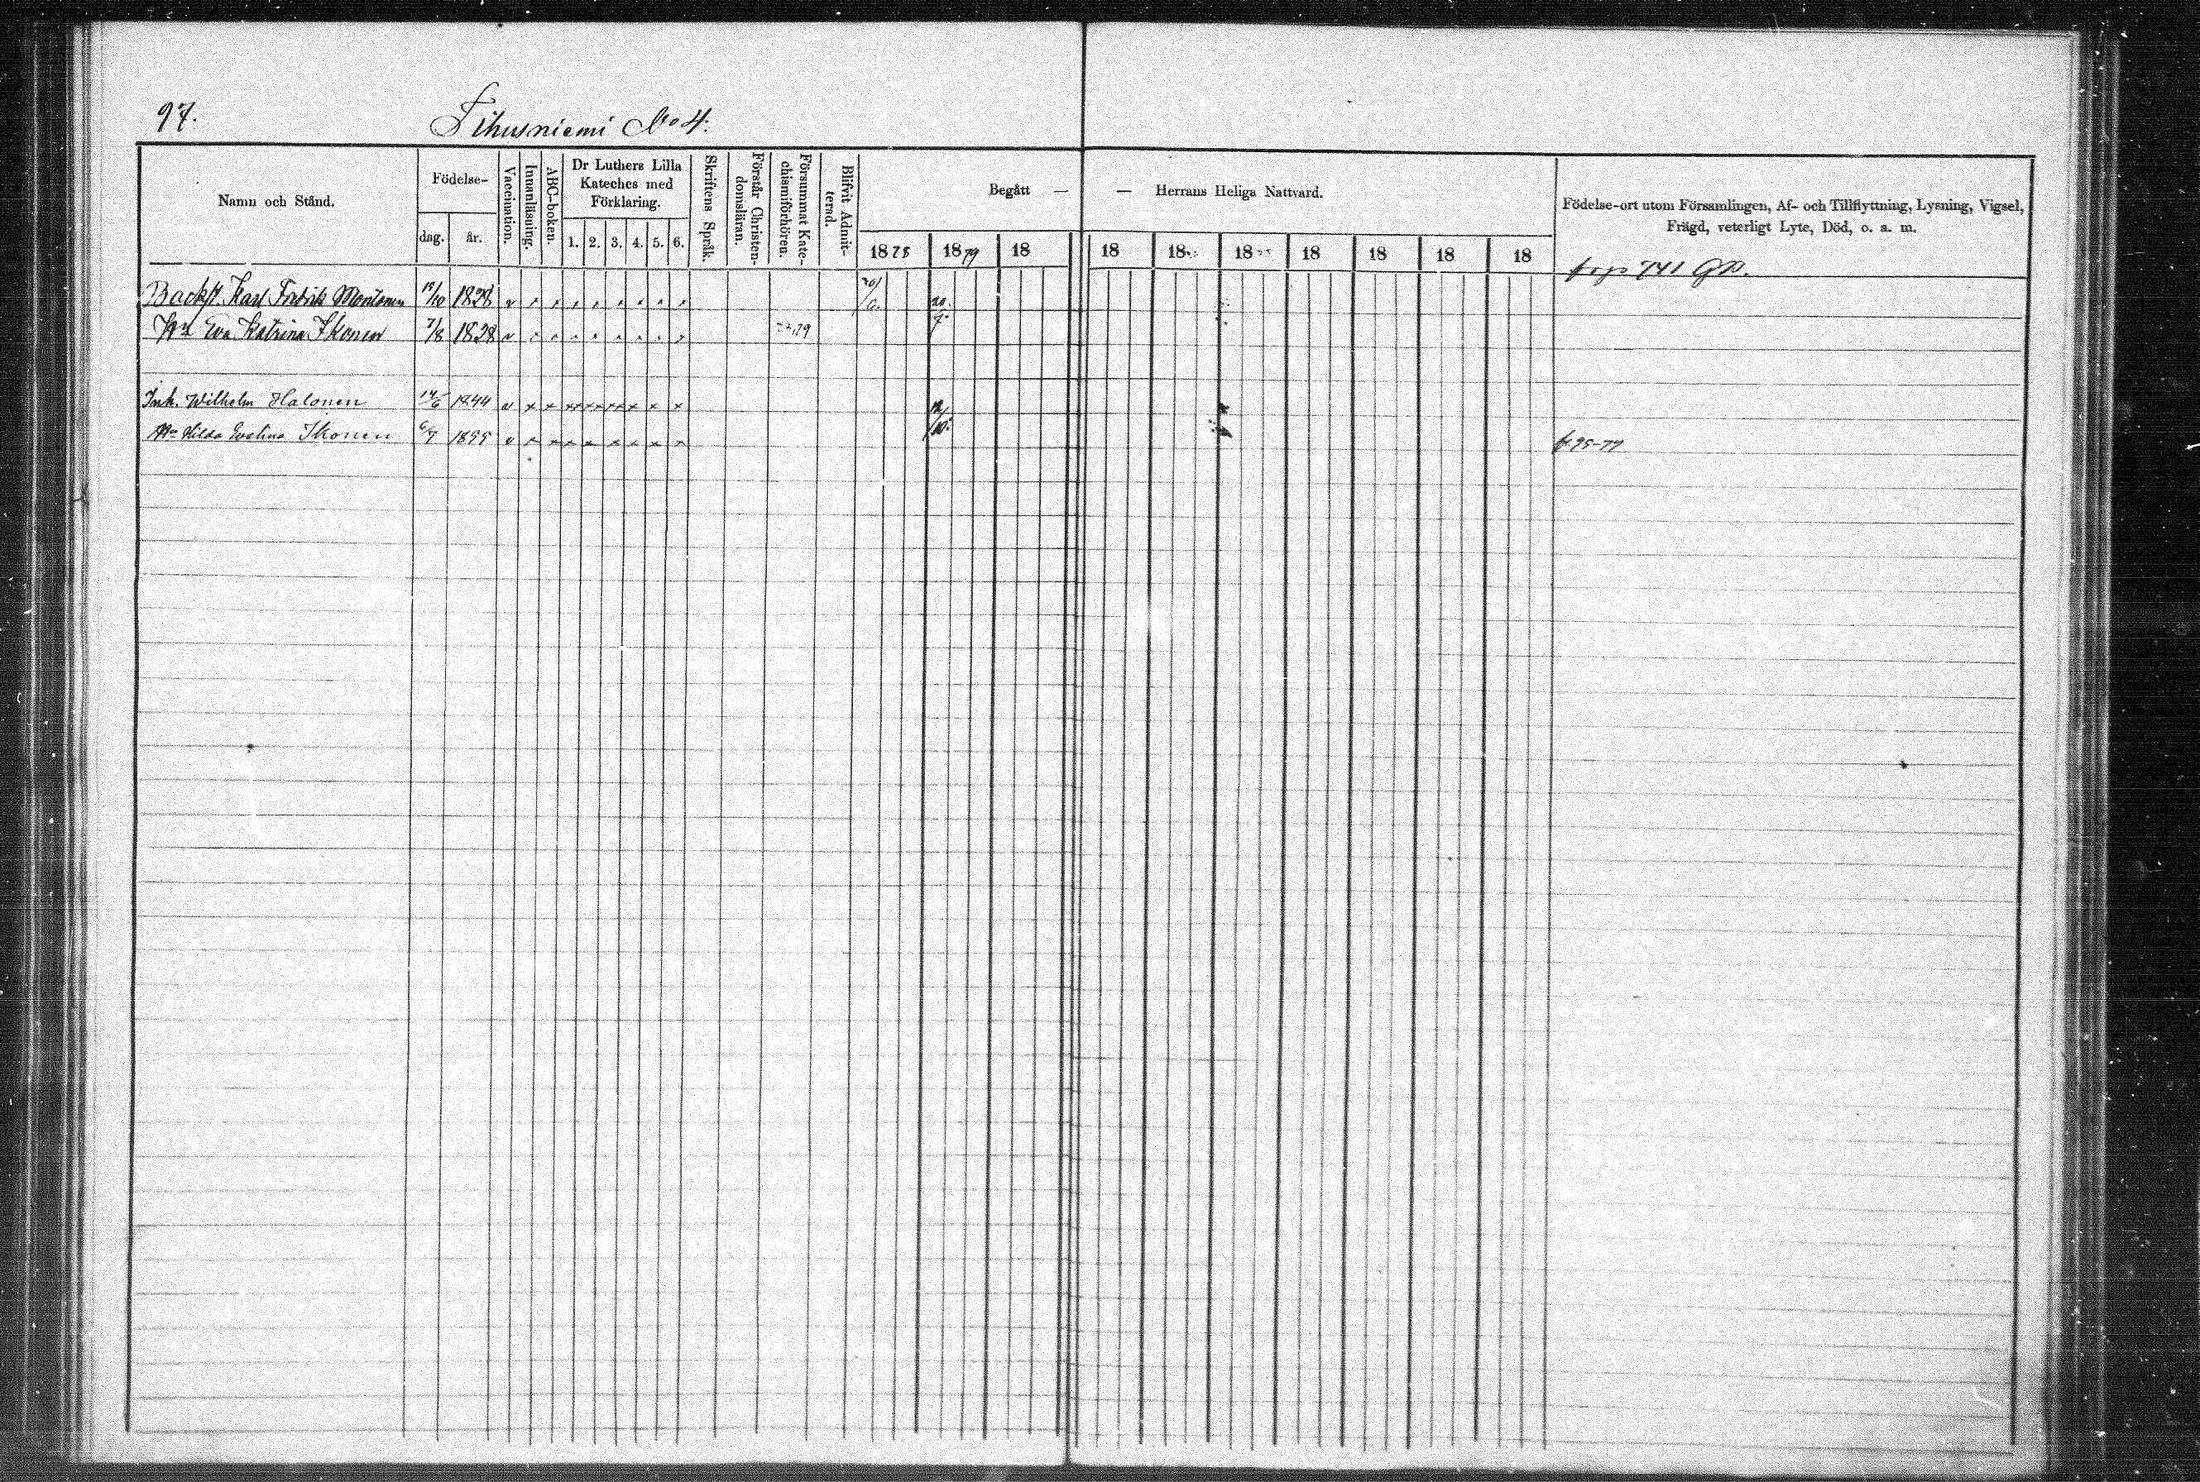 97.
Tihusniemi No 4.
Namn och Stånd.
Födelse-
dag.
år.
Vaccination.
Innanläsning.
ABC-boken.
Dr Luthers Lilla
Kateches med
Förklaring.
1. 2. 3. 4. 5. 6.
Skriftens Språk.
Förstår Christen-
domsläran.
Försummat Kate-
chismiförhören.
Blifvit Admit-
terad.
Begått — — Herrans Heliga Nattvard.
1878 1879 18 18 18 18 18 18 18 18
Födelse-ort utom Församlingen, Af- och Tillflyttning, Lysning, Vigsel,
Frägd, veterligt Lyte, Död, o. a. m.
741 GB.
Backst. Karl Fredrik Montonen 1828 v
Hu Eva Katrina Ikonen 7/8 1828 v
Inh. Wilhelm Halonen 1844 v
Hu Hilda Evelina Ikonen 6/7 1855 v 95-77